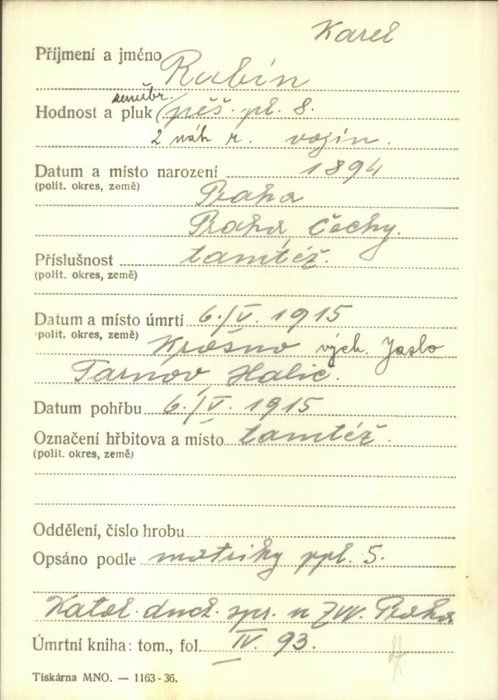 Karel
Příjmení a jméno Rubín
zeměbr.
Hodnost a pluk (pěš. pl. 8.
2 náh r. vojín.
Datum a místo narození 1894
(polit. okres, země) Praha
Praha, Čechy.
Příslušnost tamtéž.
(polit. okres, země)
Datum a místo úmrtí 6./V. 1915
(polit. okres, země) Krosno vých. Jaslo
Tarnov, Halič.
Datum pohřbu 6./V. 1915
Označení hřbitova a místo tamtéž.
(polit. okres, země)
Oddělení, číslo hrobu
Opsáno podle matriky ppl. 5.
Katol. duch. spr. u ZVV. Praha
Úmrtní kniha: tom., fol. IV. 93.
Tiskárna MNO. — 1163-36.